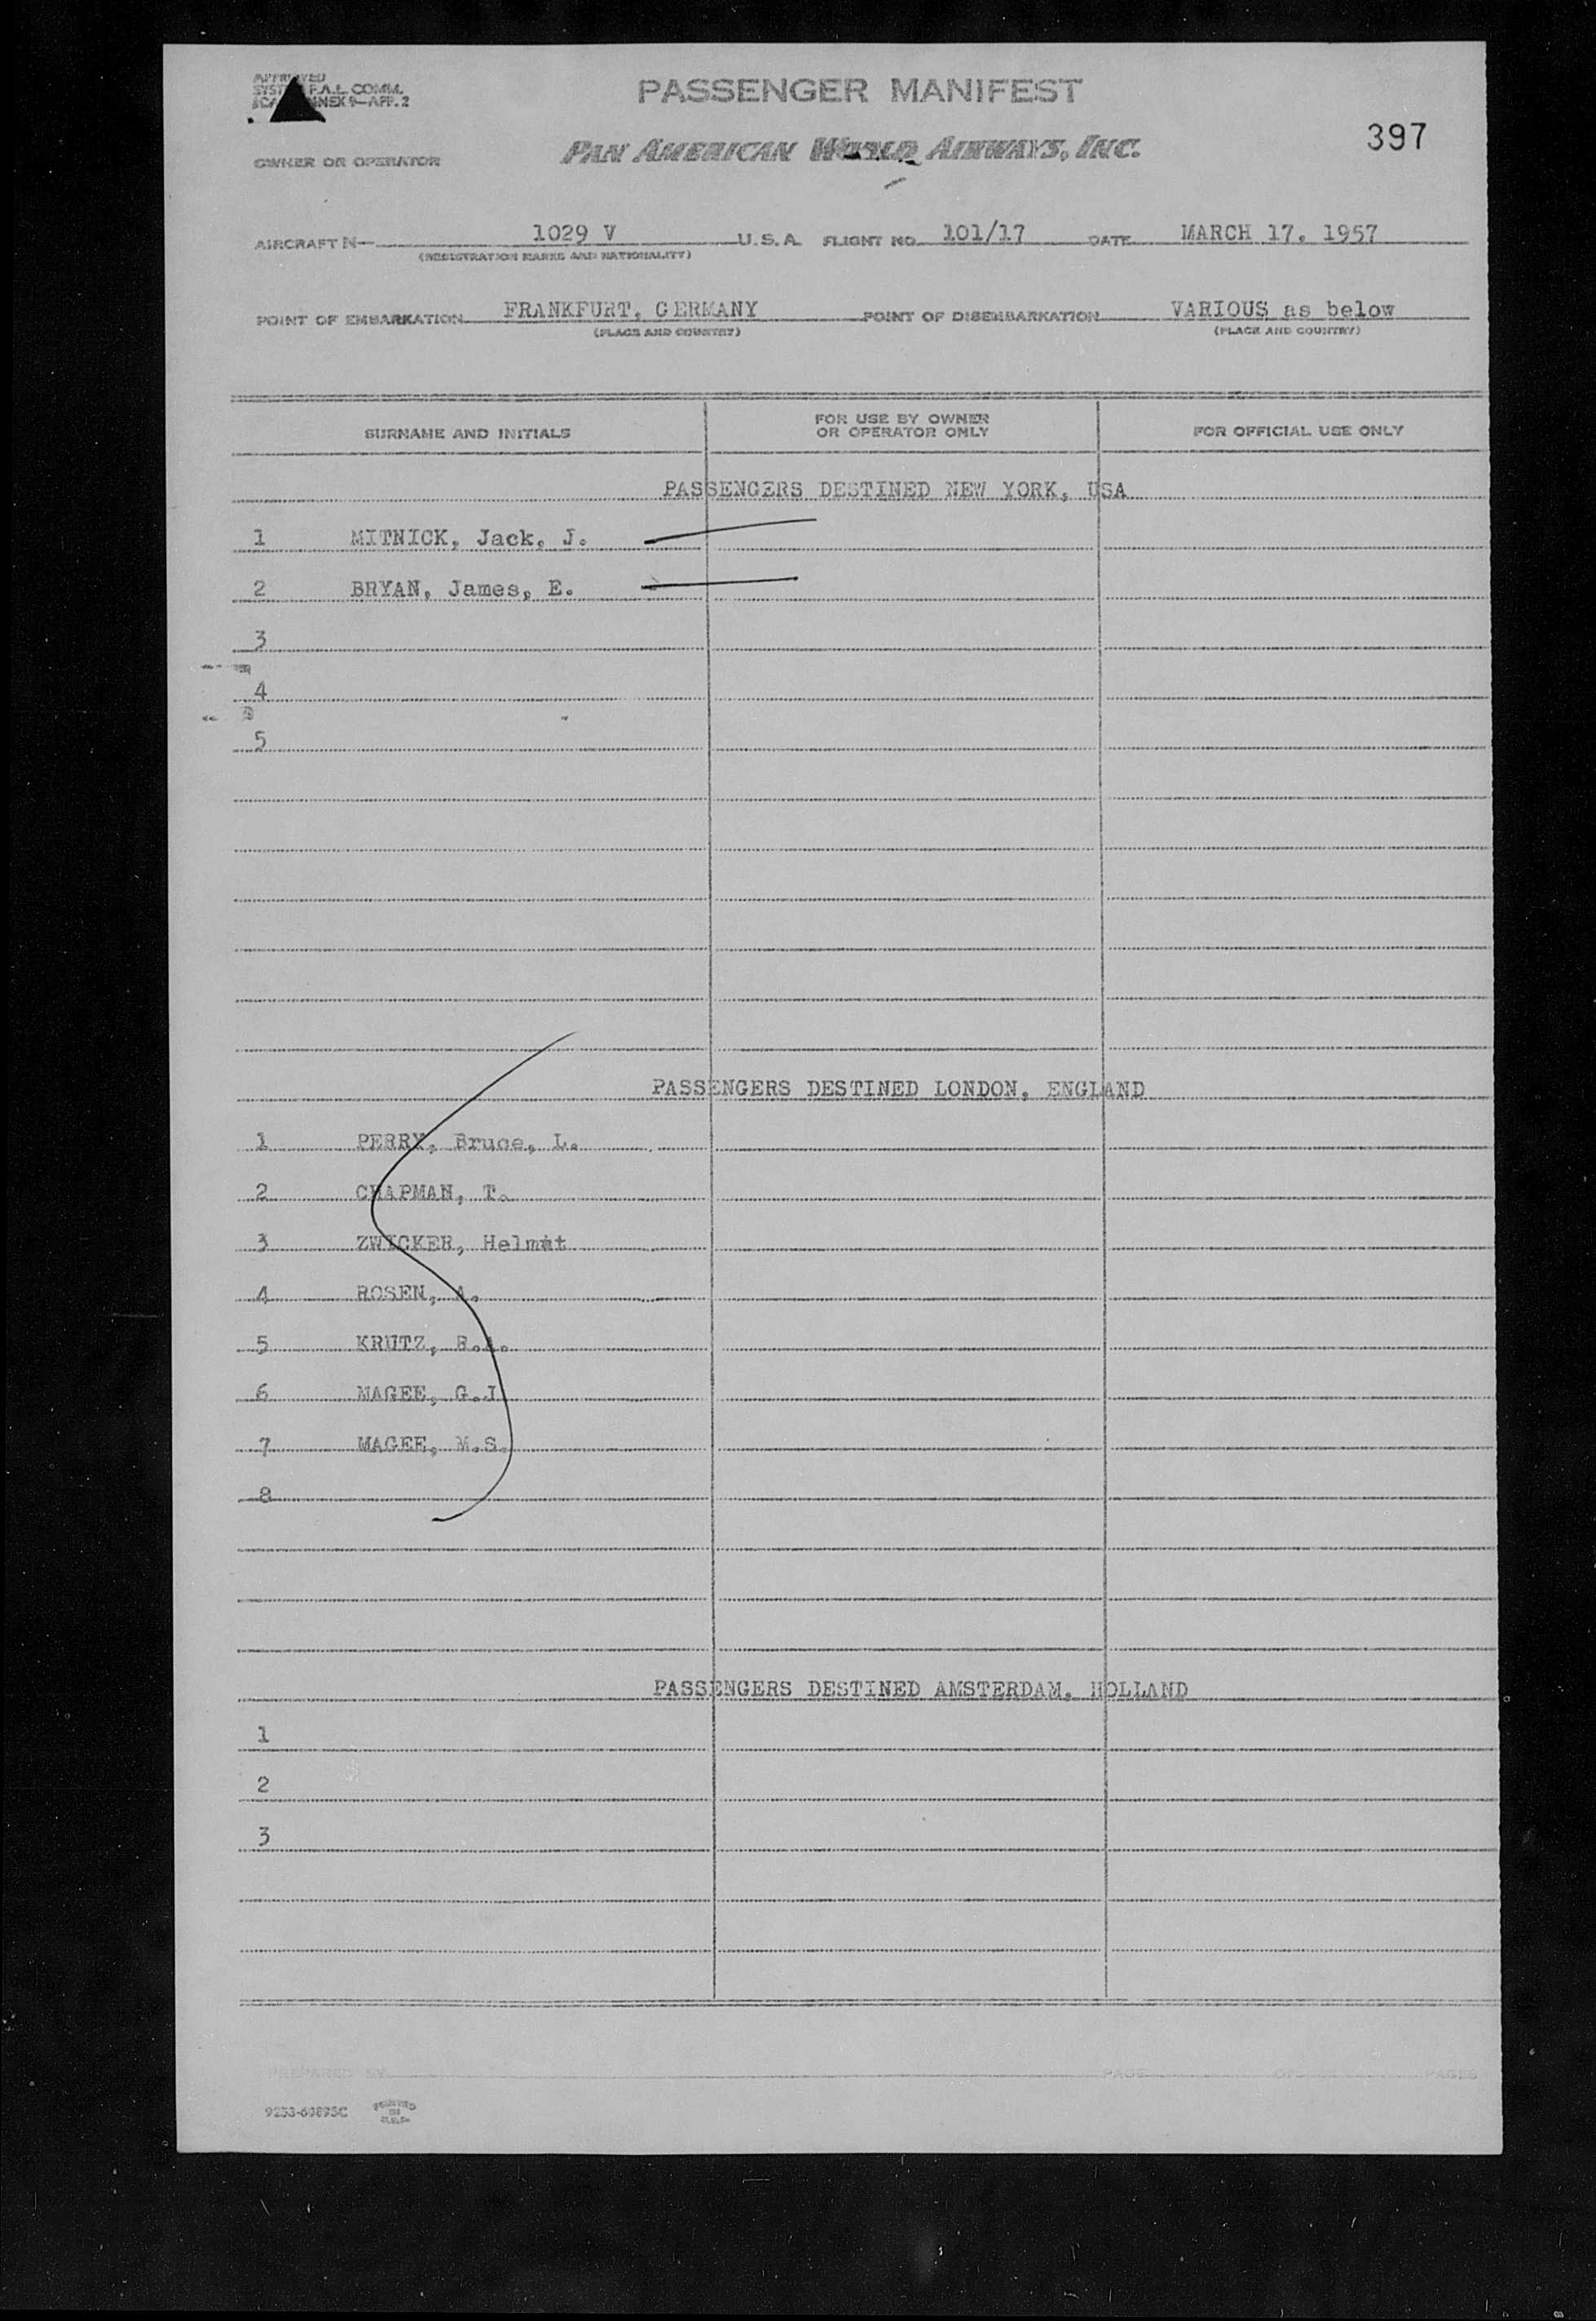 APPROVED
SYSTEM F.A.L. COMM.
ANNEX 9—APP. 2
PASSENGER MANIFEST
397
OWNER OR OPERATOR PAN AMERICAN WORLD AIRWAYS, INC.
AIRCRAFT N— 1029 V U.S.A. FLIGHT NO. 101/17 DATE MARCH 17. 1957
(REGISTRATION MARKS AND NATIONALITY)
POINT OF EMBARKATION FRANKFURT, GERMANY POINT OF DISEMBARKATION VARIOUS as below
(PLACE AND COUNTRY) (PLACE AND COUNTRY)
SURNAME AND INITIALS FOR USE BY OWNER OR OPERATOR ONLY FOR OFFICIAL USE ONLY
PASSENGERS DESTINED NEW YORK, USA
1 MITNICK, Jack, J.
2 BRYAN, James, E.
3
4
5
PASSENGERS DESTINED LONDON, ENGLAND
1 PERRY, Bruce, L.
2 CHAPMAN, T.
3 ZWICKER, Helmut
4 ROSEN, A.
5 KRUTZ, R.
6 MAGEE, G.J
7 MAGEE, M.S.
8
PASSENGERS DESTINED AMSTERDAM, HOLLAND
1
2
3
PREPARED BY PAGE OF PAGES
9233-60895C PRINTED
IN
U.S.A.